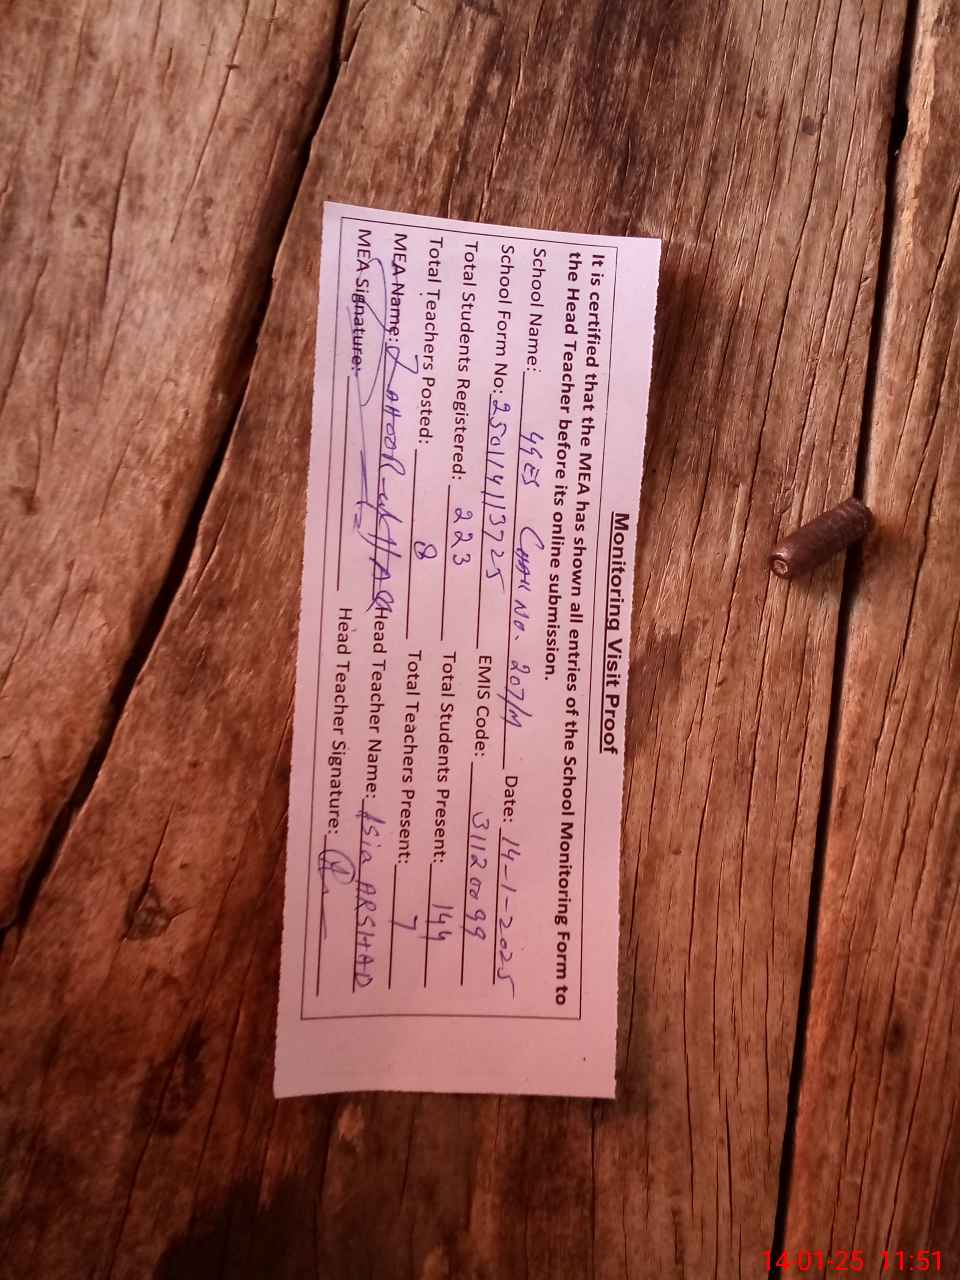 Monitoring Visit Proof
It is certified that the MEA has shown all entries of the School Monitoring Form to
the Head Teacher before its online submission.
School Name: GGES CHAK No. 207/M Date: 14-1-2025
School Form No: 250114113725 EMIS Code: 31120099
Total Students Registered: 223 Total Students Present: 144
Total Teachers Posted: 8 Total Teachers Present: 7
MEA Name: ZAHOOR-ul-HAQ Head Teacher Name: ASia ARSHAD
MEA Signature: Head Teacher Signature:
14-01-25 11:51